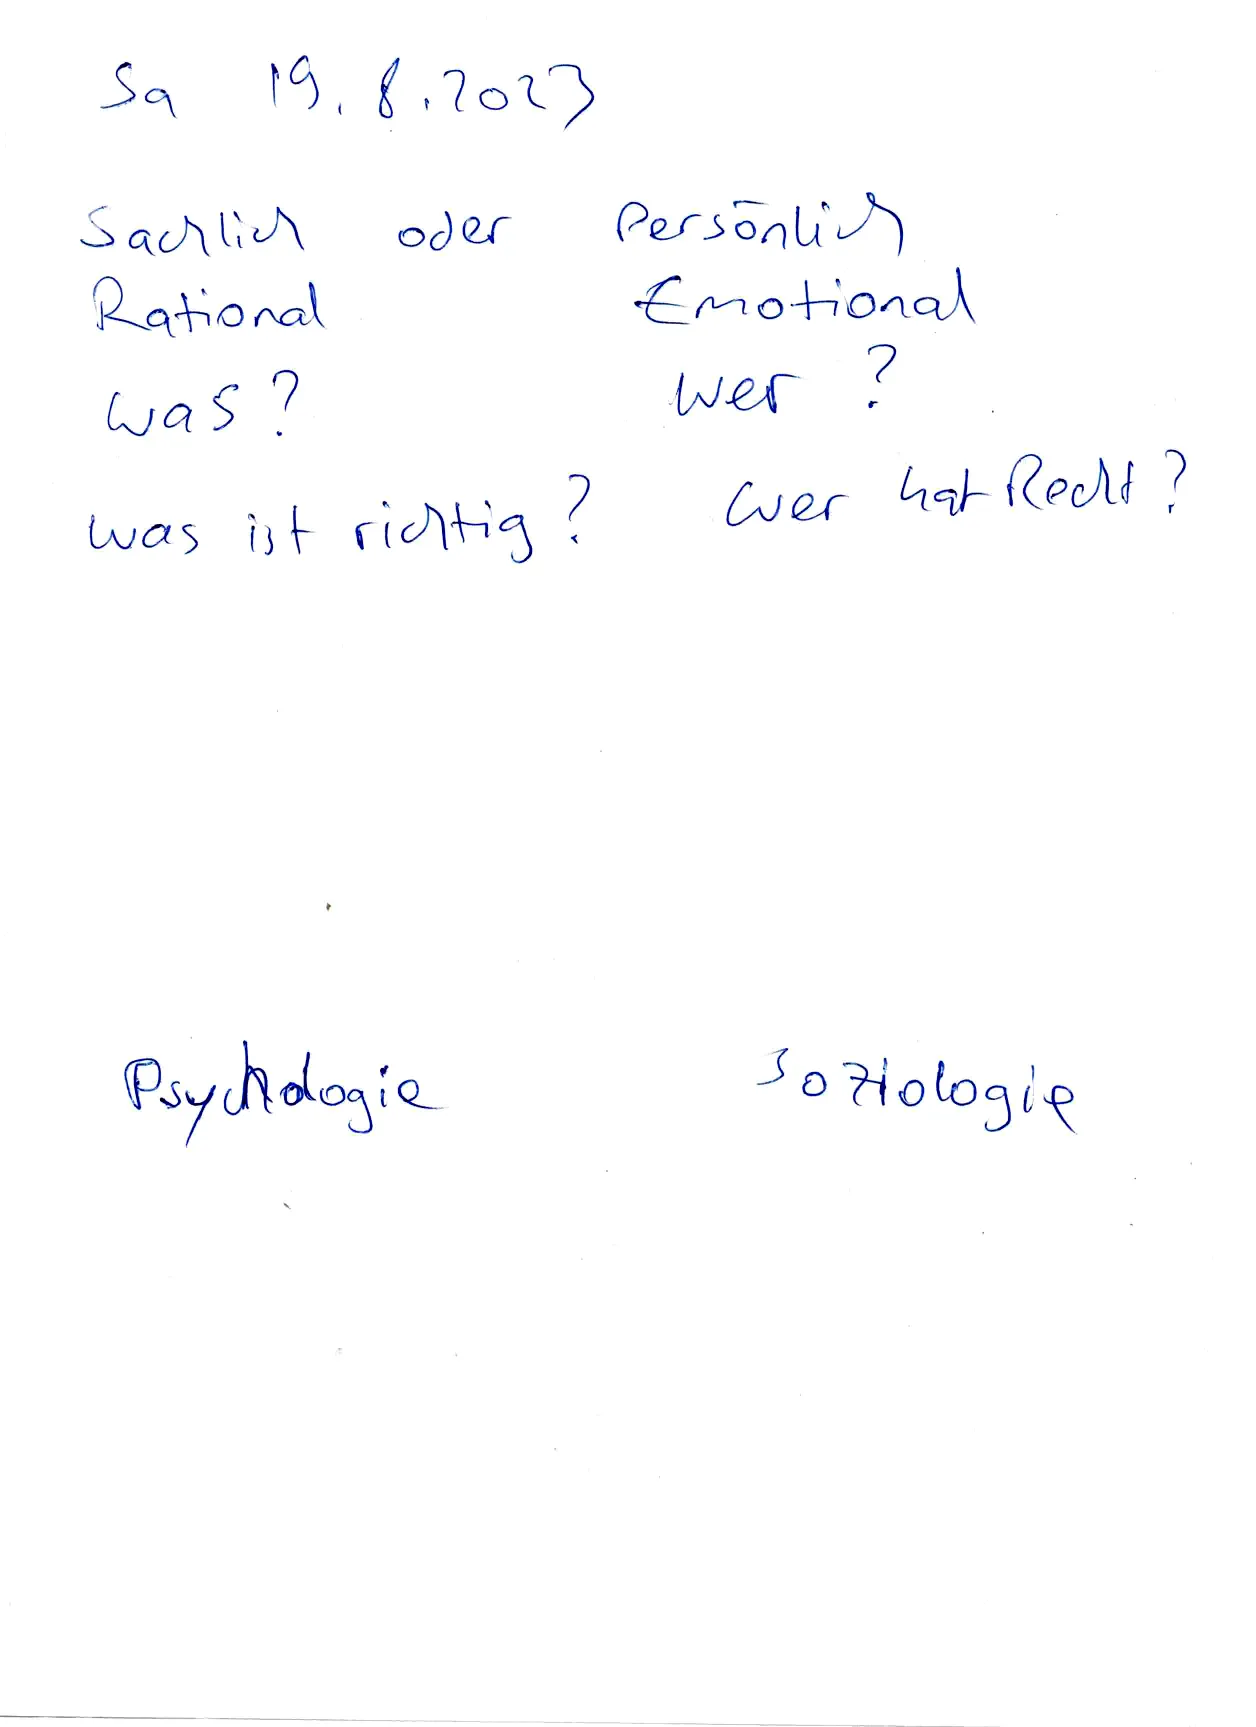 Sa 19.8.2023
Sachlich oder Persönlich
Rational Emotional
was? wer?
was ist richtig? wer hat Recht?
Psychologie Soziologie